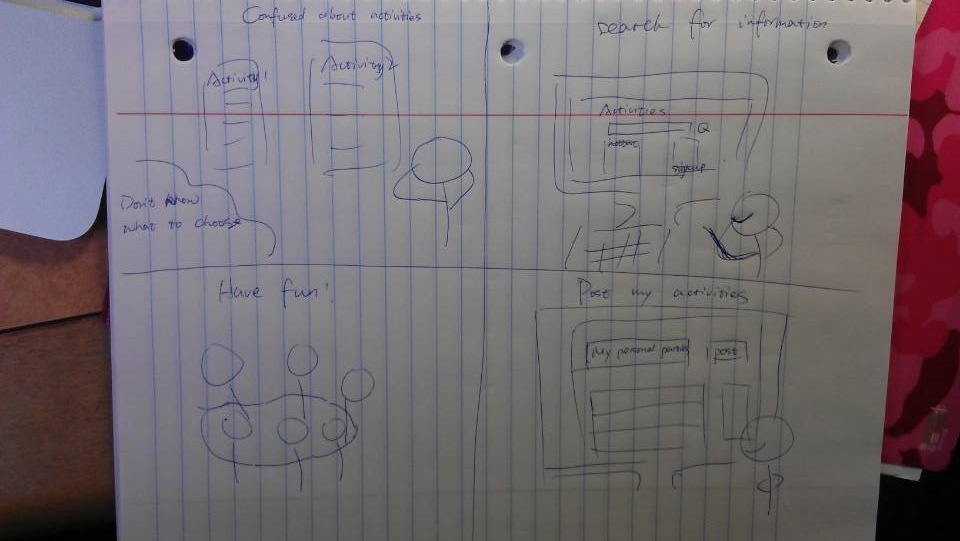 Confused about activities
Activity 1
Activity 2
Don't know
what to choose
search for information
Activities
Q
signup
Have fun!
Post my activities
My personal parties
post